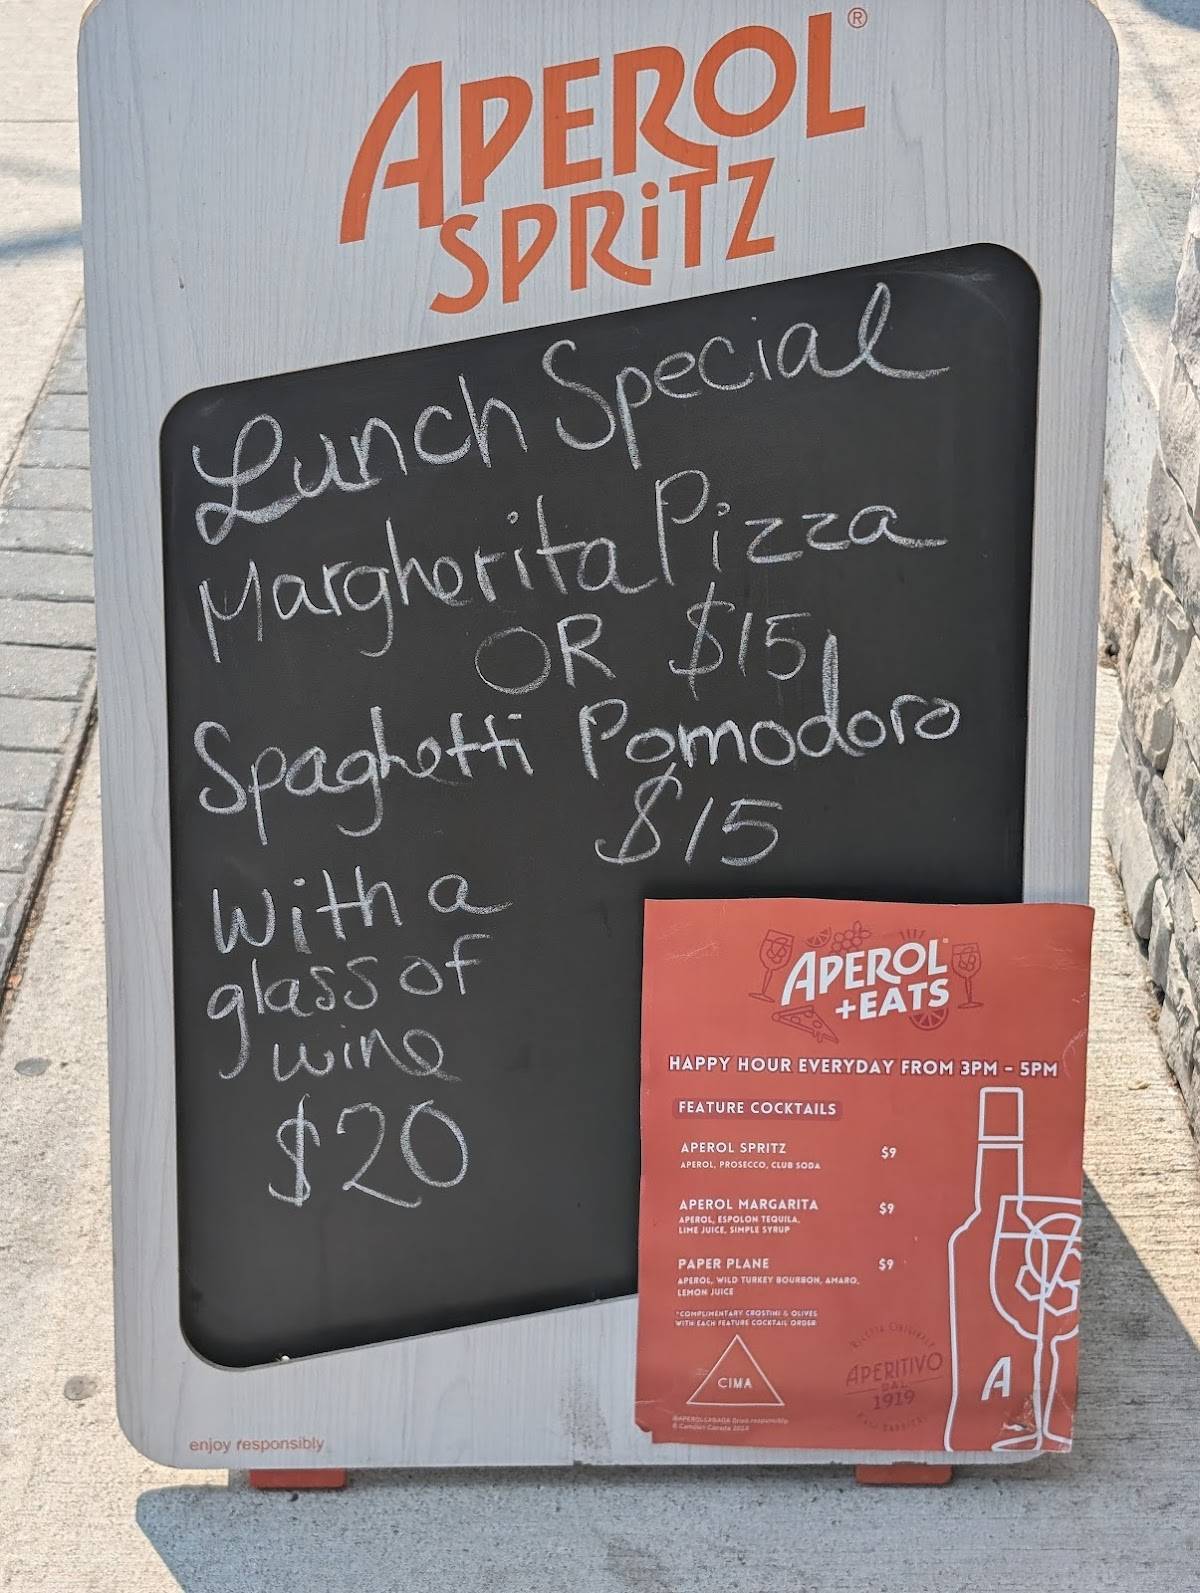 APEROL®
SPRiTZ
Lunch Special
Margherita Pizza
OR $15
Spaghetti Pomodoro
$15
With a
glass of
wine
$20
APEROL
+EATS
HAPPY HOUR EVERYDAY FROM 3PM - 5PM
FEATURE COCKTAILS
APEROL SPRITZ $9
APEROL, PROSECCO, CLUB SODA
APEROL MARGARITA $9
APEROL, ESPOLON TEQUILA,
LIME JUICE, SIMPLE SYRUP
PAPER PLANE $9
APEROL, WILD TURKEY BOURBON, AMARO,
LEMON JUICE
*COMPLIMENTARY CROSTINI & OLIVES
WITH EACH FEATURE COCKTAIL ORDER
CIMA
APERITIVO
DAL
1919
A
enjoy responsibly